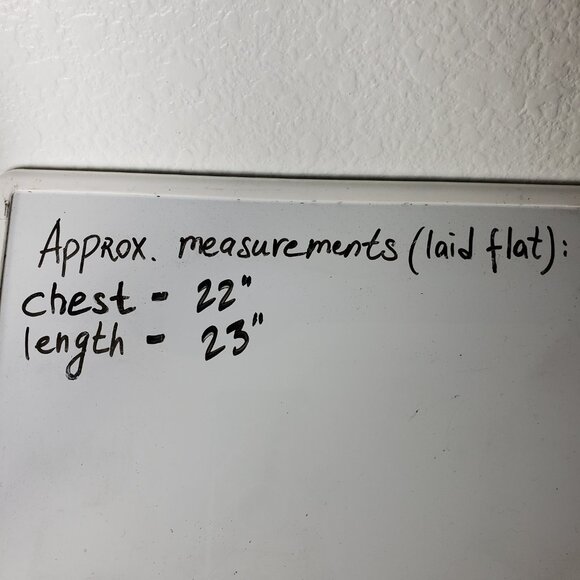 Approx. measurements (laid flat):
chest - 22"
length - 23"